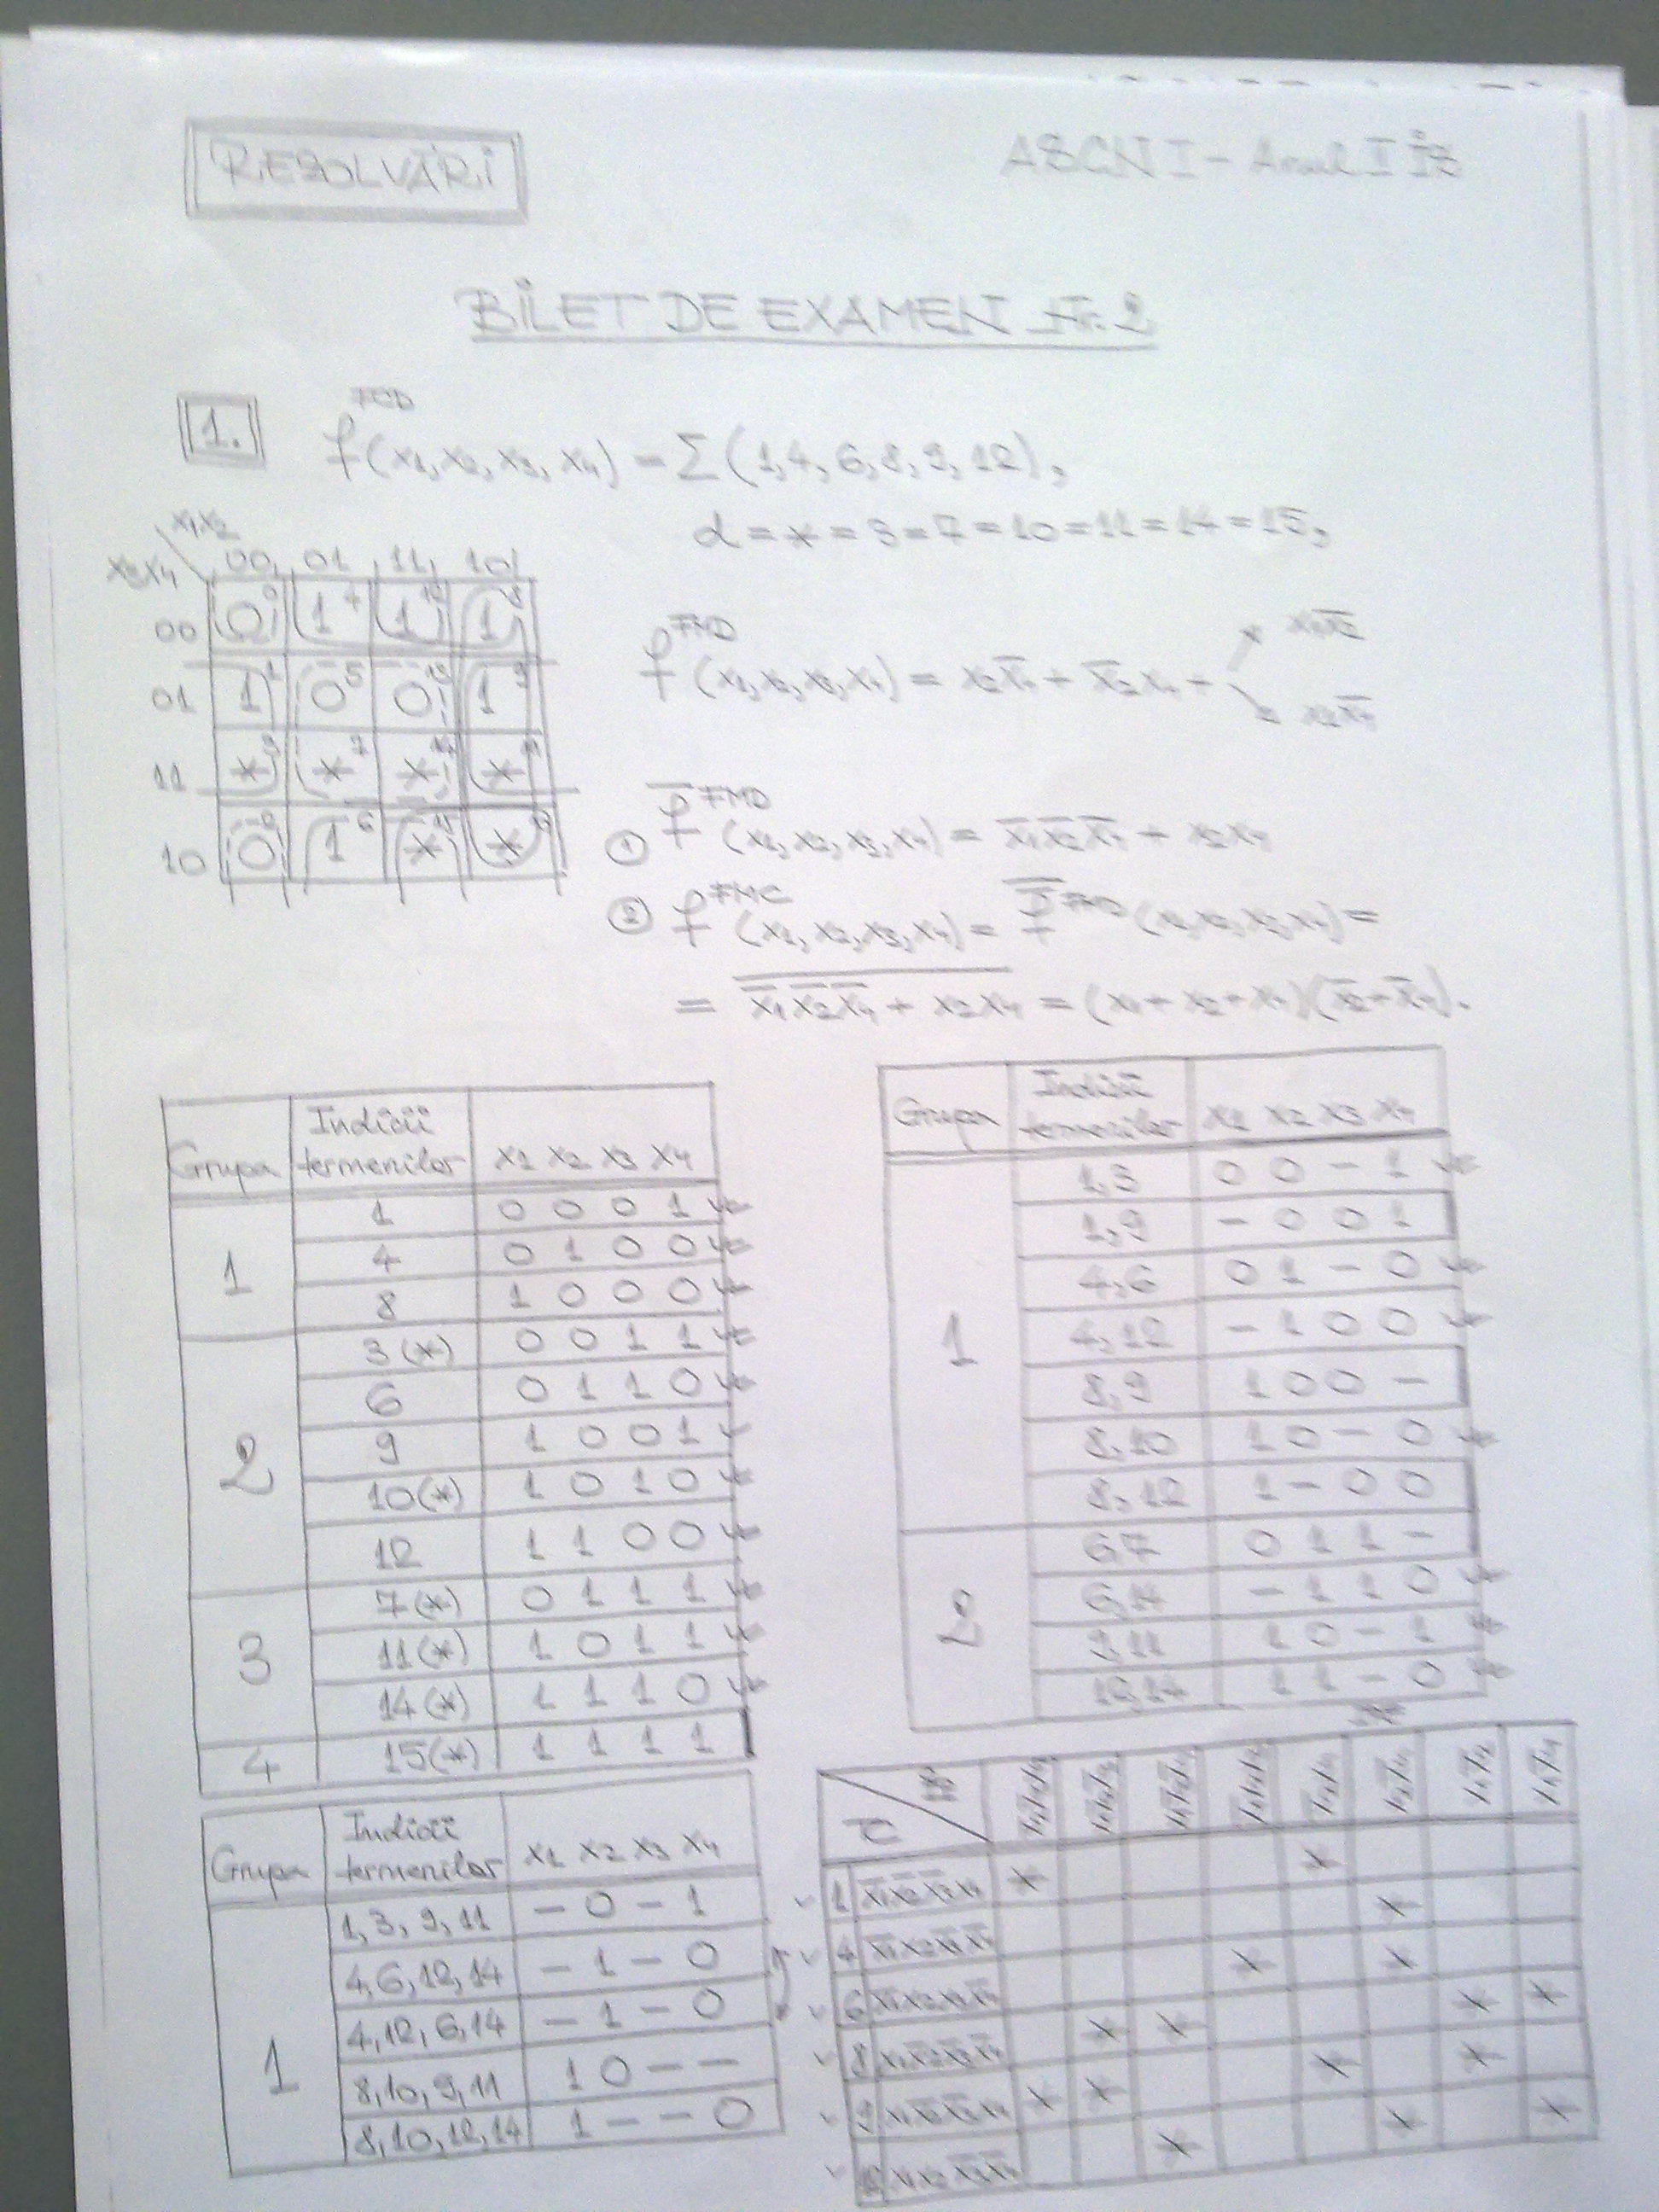 REZOLVĂRI
ASCN I - Anul I
BILET DE EXAMEN Nr. 2
1.
FCD
f(x1, x2, x3, x4) = Σ(1, 4, 6, 8, 9, 12),
d = * = 3 = 7 = 10 = 11 = 14 = 15,
x1x2
x3x4 00 01 11 10
00 0 0 1 4 1 12 1 8
01 1 1 0 5 0 13 1 9
11 * 3 * 7 * *  11
10 0 1 6 * * 10
f FMD (x1, x2, x3, x4) = x2x̄4 + x̄2x4 +
x1x̄2
x1x̄4
① f̄ FMD (x1, x2, x3, x4) = x̄1x̄2x̄4 + x2x4
② f FMC (x1, x2, x3, x4) = f̿ FMD (x1, x2, x3, x4) =
= x̄1x̄2x̄4 + x2x4 = (x1 + x2 + x4)(x̄2 + x̄4).
Grupa Indicii termenilor x1 x2 x3 x4
1
1 0 0 0 1 ✓
4 0 1 0 0 ✓
8 1 0 0 0 ✓
2
3(*) 0 0 1 1 ✓
6 0 1 1 0 ✓
9 1 0 0 1 ✓
10(*) 1 0 1 0 ✓
12 1 1 0 0 ✓
3
7(*) 0 1 1 1 ✓
11(*) 1 0 1 1 ✓
14(*) 1 1 1 0 ✓
4
15(*) 1 1 1 1
Grupa Indicii termenilor x1 x2 x3 x4
1
1,3 0 0 - 1 ✓
1,9 - 0 0 1
4,6 0 1 - 0 ✓
4,12 - 1 0 0 ✓
8,9 1 0 0 -
8,10 1 0 - 0 ✓
8,12 1 - 0 0
2
6,7 0 1 1 -
6,14 - 1 1 0 ✓
9,11 1 0 - 1 ✓
12,14 1 1 - 0 ✓
Grupa Indicii termenilor x1 x2 x3 x4
1
1, 3, 9, 11 - 0 - 1
4,6, 12, 14 - 1 - 0
4,12, 6,14 - 1 - 0
8,10, 9, 11 1 0 - -
8,10, 12, 14 1 - - 0
✓ 1 x̄1x̄2x̄3x4 * *
✓ 4 x̄1x2x̄3x̄4 *
✓ 6 x̄1x2x3x̄4 * *
✓ 8 x1x̄2x̄3x̄4 * * * *
✓ 9 x1x̄2x̄3x4 * * * *
✓ 12 x1x2x̄3x̄4 * * *